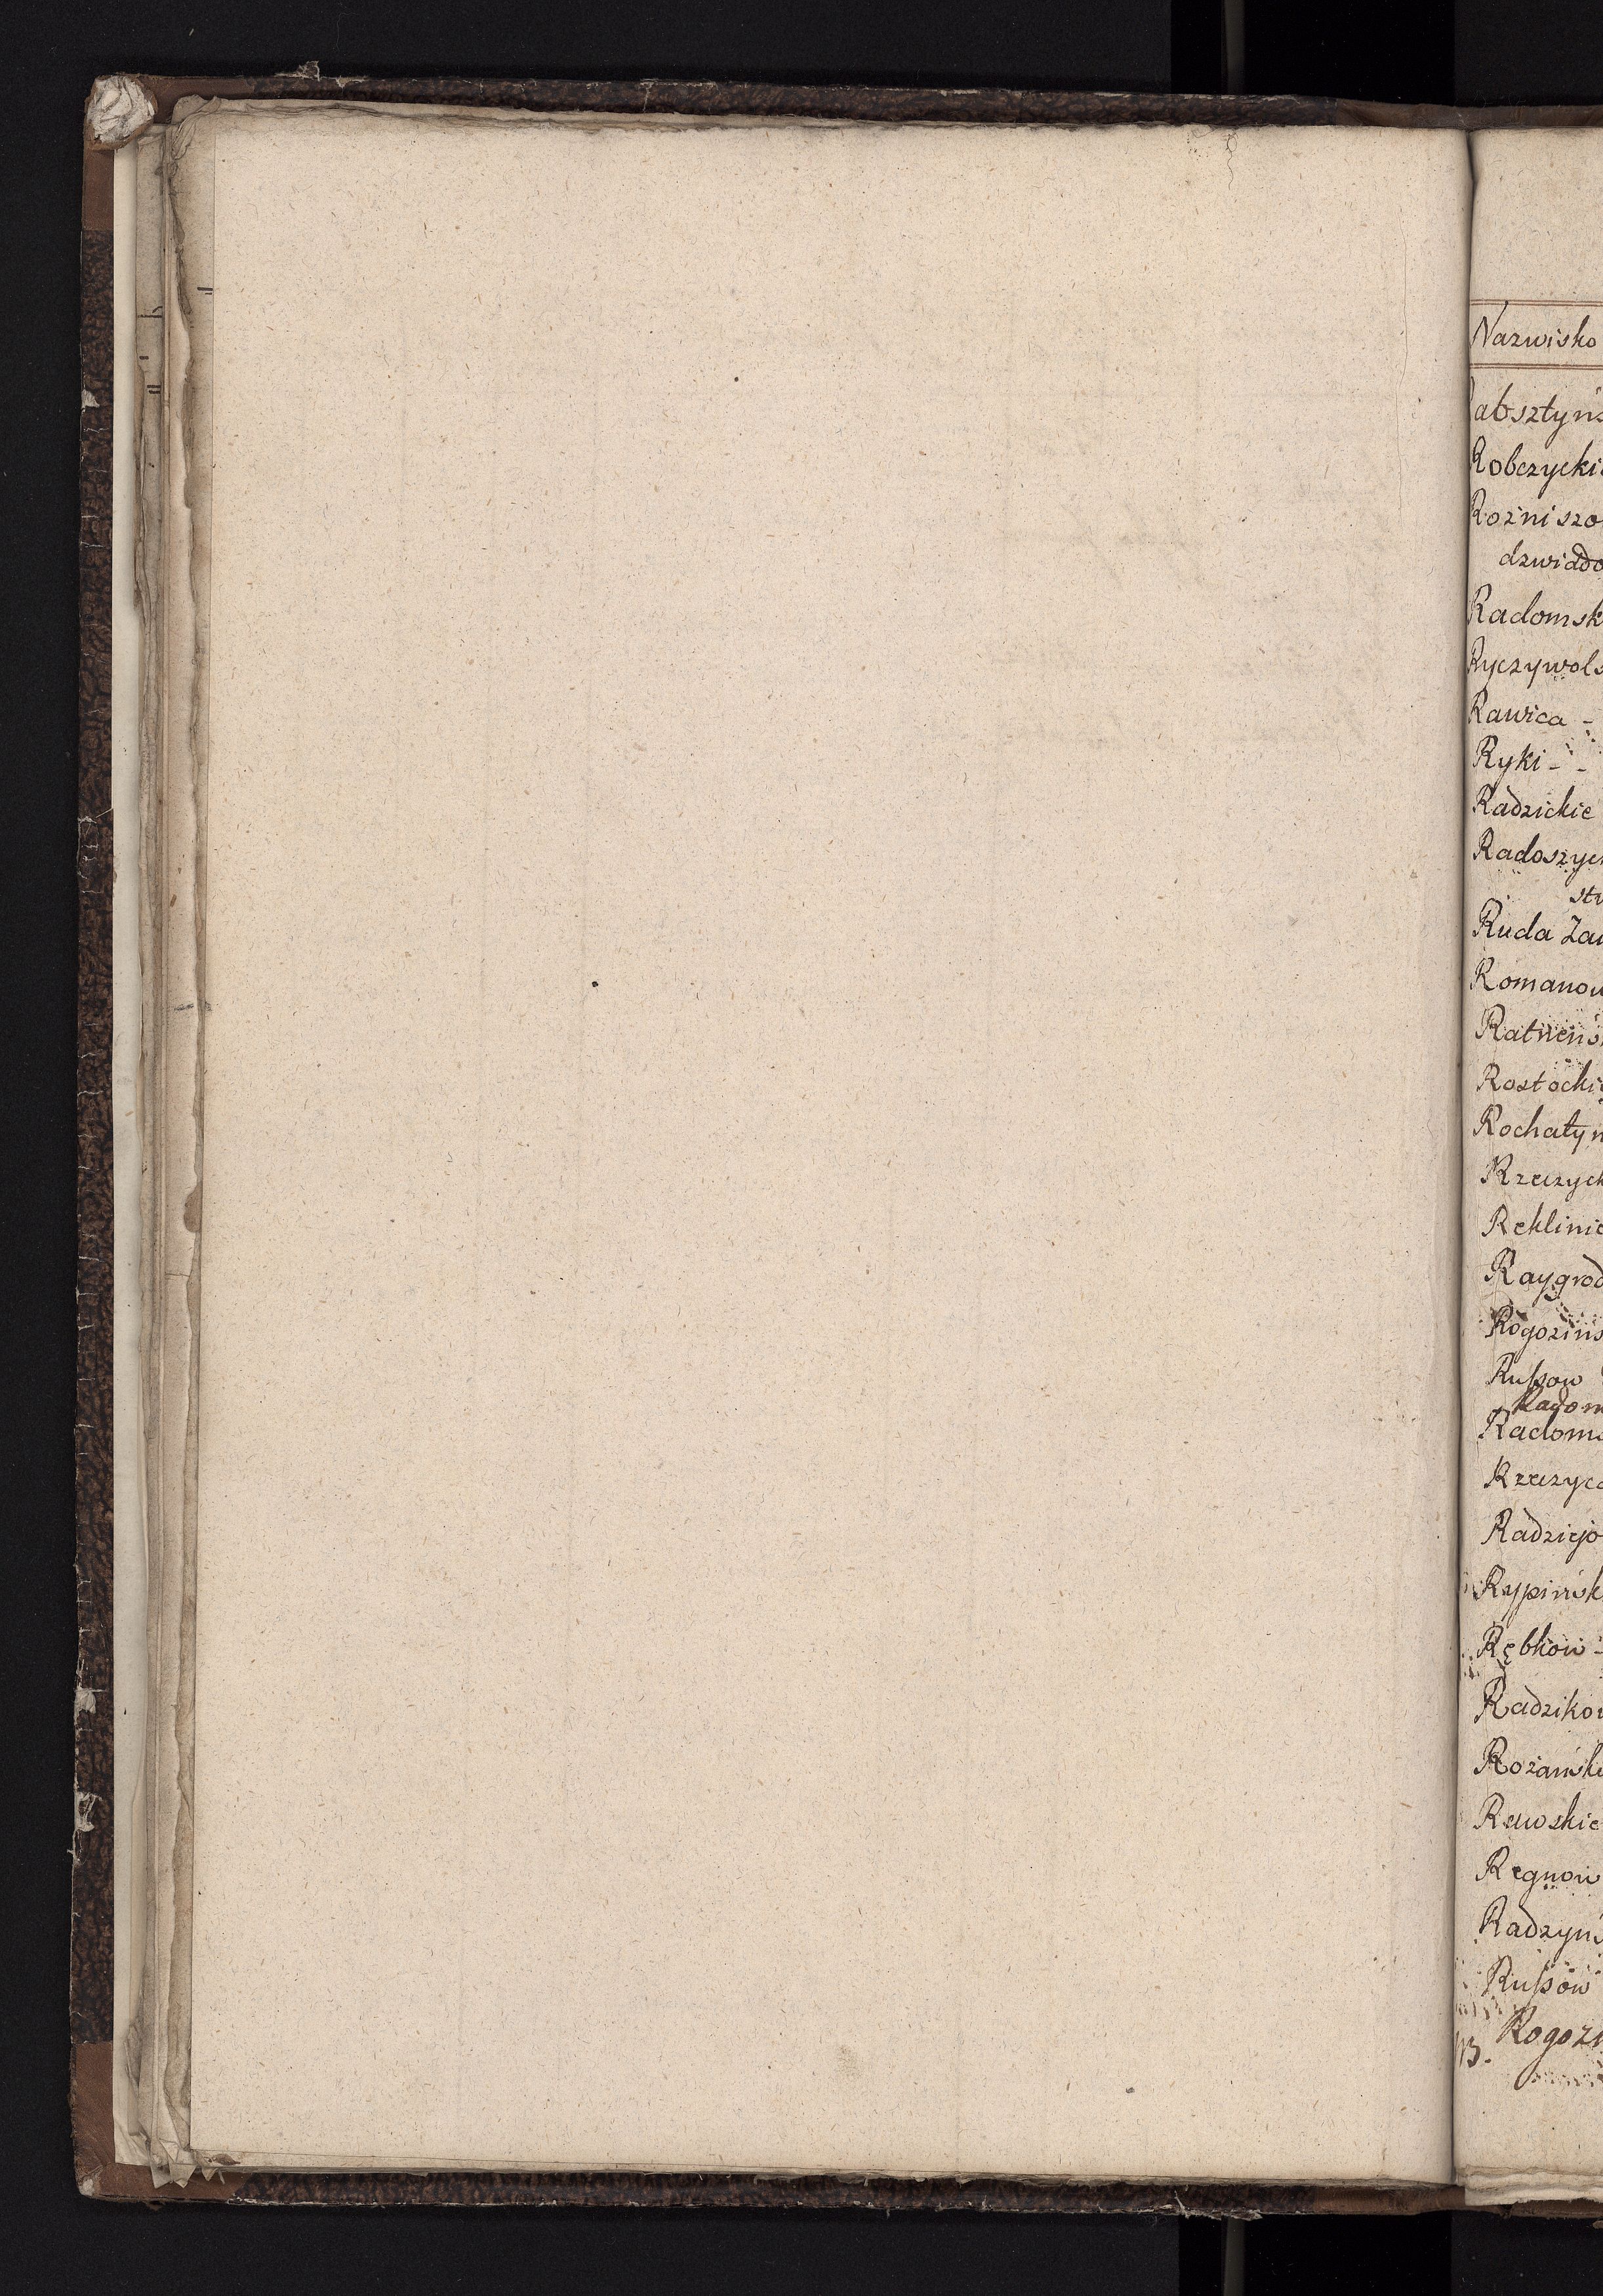 Nazwisko
absztyńs
Robczycki
Rozniszo
dzwiado
Radomsk
Ryczywols
Rawica -
Ryki - -
Radzickie
Radoszyc
stw
Ruda Zau
Romanow
Ratneńs
Rostocki
Rochatyn
Rzeczyck
Reklinie
Raygrod
Rogozins
Rußow
Radom
Radoms
Rzeczyca
Radziejo
Rypińsk
Rębkow -
Radzikow
Rożańsk
Rawskie
Regnow
Radzyńs
Rußow
Rogozn